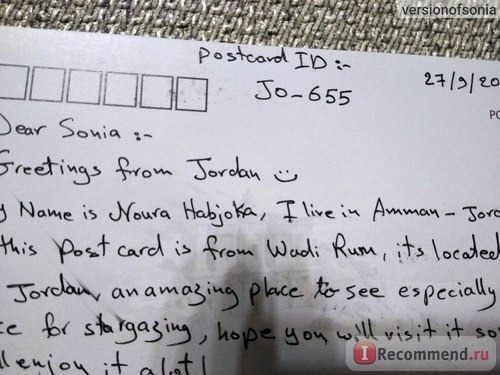 versionofsonia
Postcard ID:-
Jo-655
27/9/20
PO
Dear Sonia :-
Greetings from Jordan
y Name is Noura Habjoka, I live in Amman - Jord
this Postcard is from Wadi Rum, its located
Jordan, an amazing place to see especially
ce for stargazing, hope you will visit it so
ll enjoy it alot!
IRecommend.ru